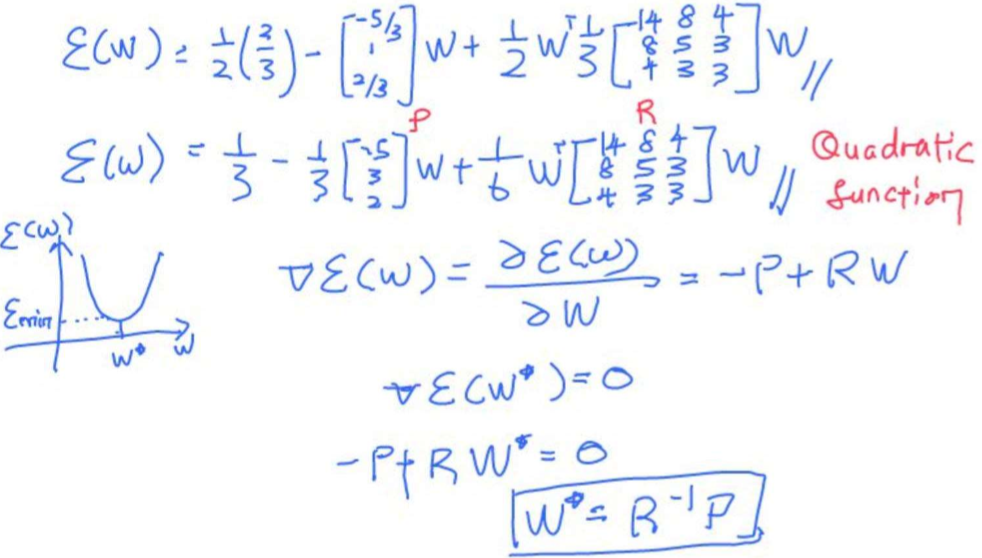 Ɛ(W) = 1/2 (2/3) - [-5/3 1 2/3] W + 1/2 W^T 1/3 [14 8 4 8 5 3 4 3 3] W //
Ɛ(W) = 1/3 - 1/3 [-5 3 2] W + 1/6 W^T [14 8 4 8 5 3 4 3 3] W //
P
R
Quadratic
function
Ɛ(W)
Ɛmin
W*
W
∇Ɛ(W) = ∂Ɛ(W)/∂W = -P + RW
∇Ɛ(W*) = 0
-P + RW* = 0
W* = R⁻¹P